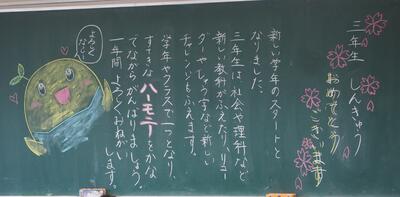 三年生 しんきゅう
おめでとう
ございます
新しい学年のスタートと
なりました。
三年生は、社会や理科など
新しい教科がふえたり、リコー
ダーやしゅう字など新しい
チャレンジもふえます。
学年やクラスで一つとなり、
すてきなハーモニーをかな
でながらがんばりましょう。
一年間よろしくおねがい
します。
よろしく
ね!